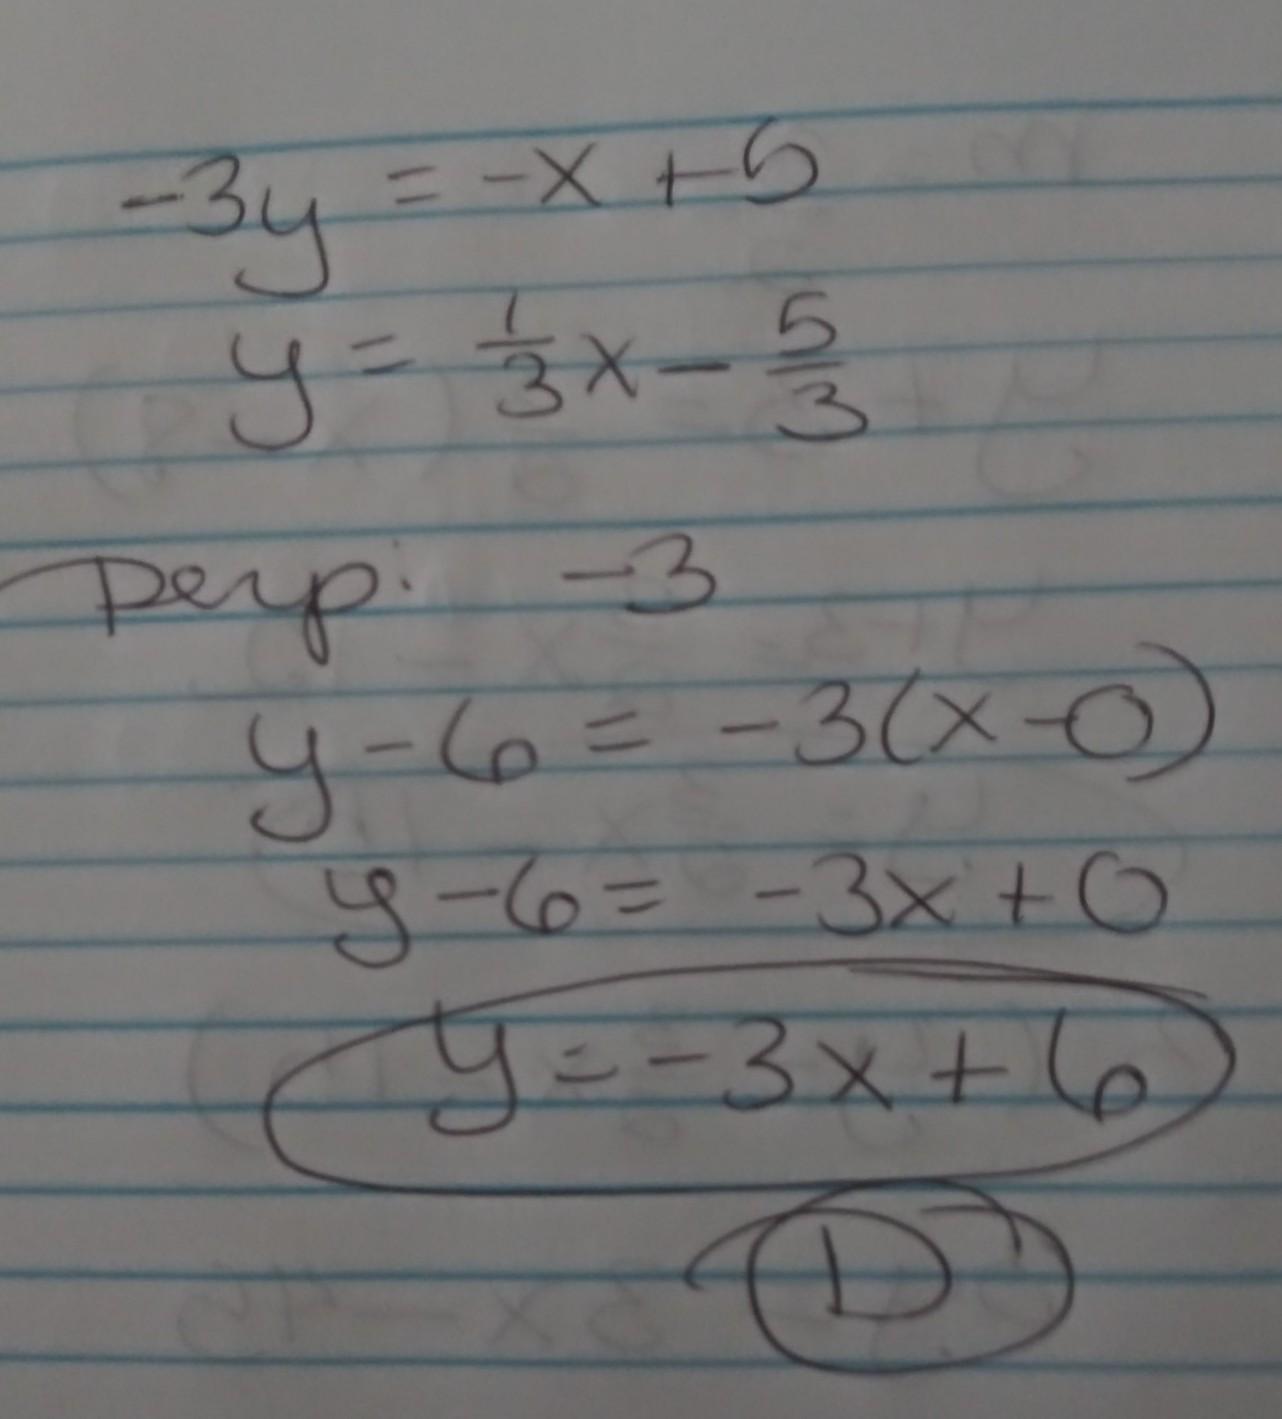 -3y = -x + 5
y = 1/3 x - 5/3
Perp: -3
y - 6 = -3(x - 0)
y - 6 = -3x + 0
y = -3x + 6
D